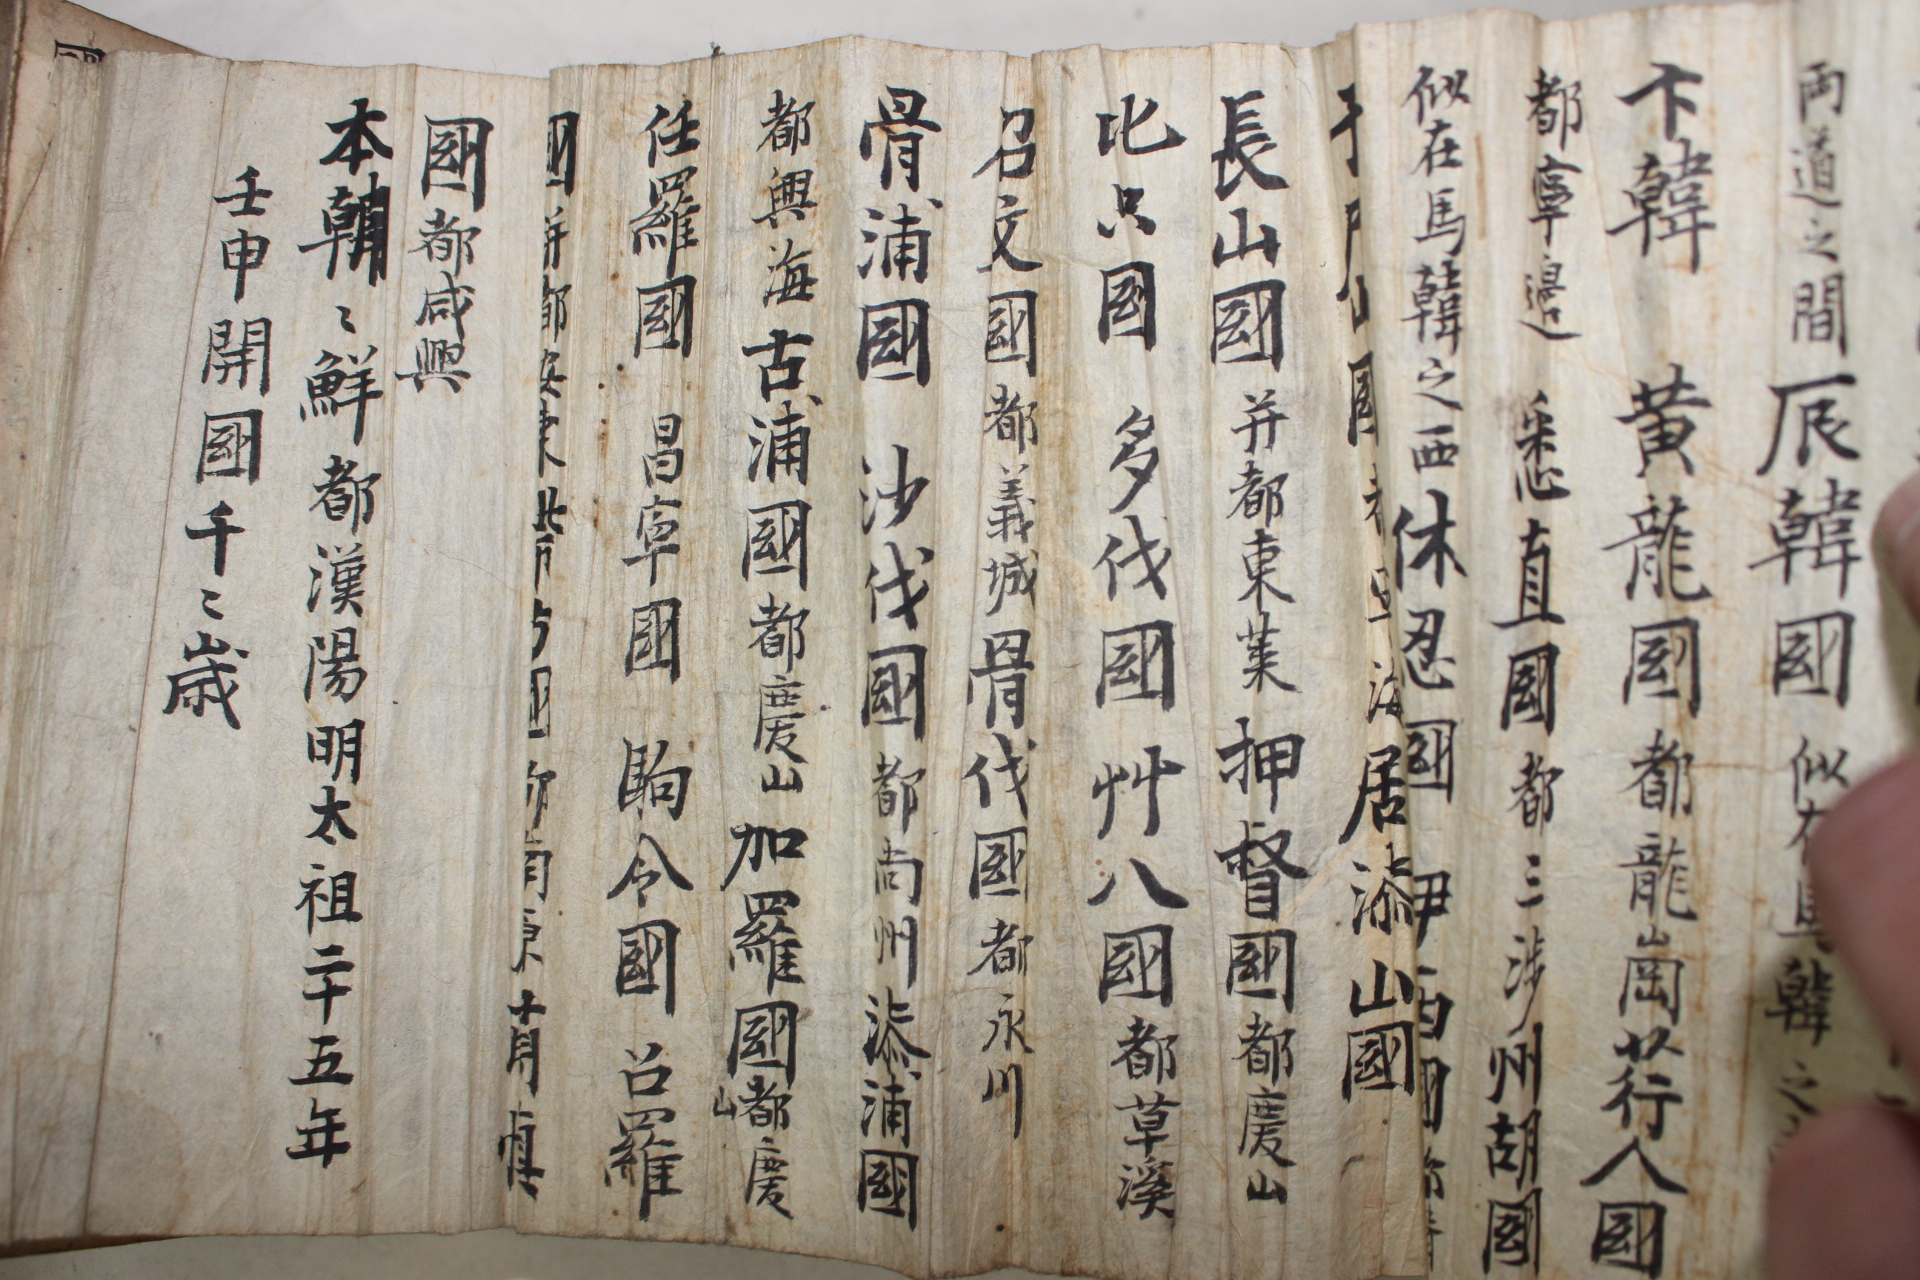 両道之間 辰韓國 似在馬韓之
卞韓 黃龍國 都龍岡 荇人國
都寧邊 悉直國 都三涉 州胡國
似在馬韓之西 休忍國 伊西國
于尸山國 海 居漆山國
長山國 并都東萊 押督國 都慶山
比只國 多伐國 艸八國 都草溪
召文國 都義城 骨伐國 都永川
骨浦國 沙伐國 都尚州 漆浦國
都興海 古浦國 都慶山 加羅國 都慶山
任羅國 昌寧國 駒令國 召羅
國 并都安東
國 都咸興
本朝〻鮮 都漢陽 明太祖二十五年
壬申開國千〻歳